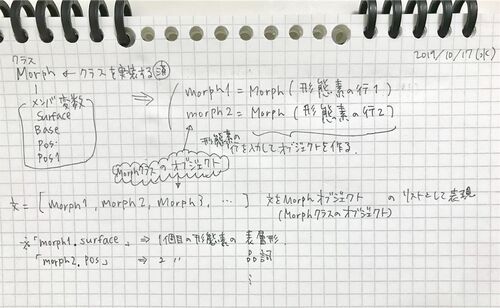 2019/10/17(水)
クラス
Morph ← クラスを実装する
メンバ変数
Surface
Base
Pos
Pos1
⇒ morph1 = Morph(形態素の行1)
morph2 = Morph(形態素の行2)
形態素の
行を入力してオブジェクトを作る.
Morphクラスのオブジェクト
文 = [morph1, morph2, morph3, …] 文をMorphオブジェクトのリストとして表現
(Morphクラスのオブジェクト)
※「morph1.surface」⇒ 1個目の形態素の表層形.
「morph2.pos」⇒ 2 〃 品詞
⋮